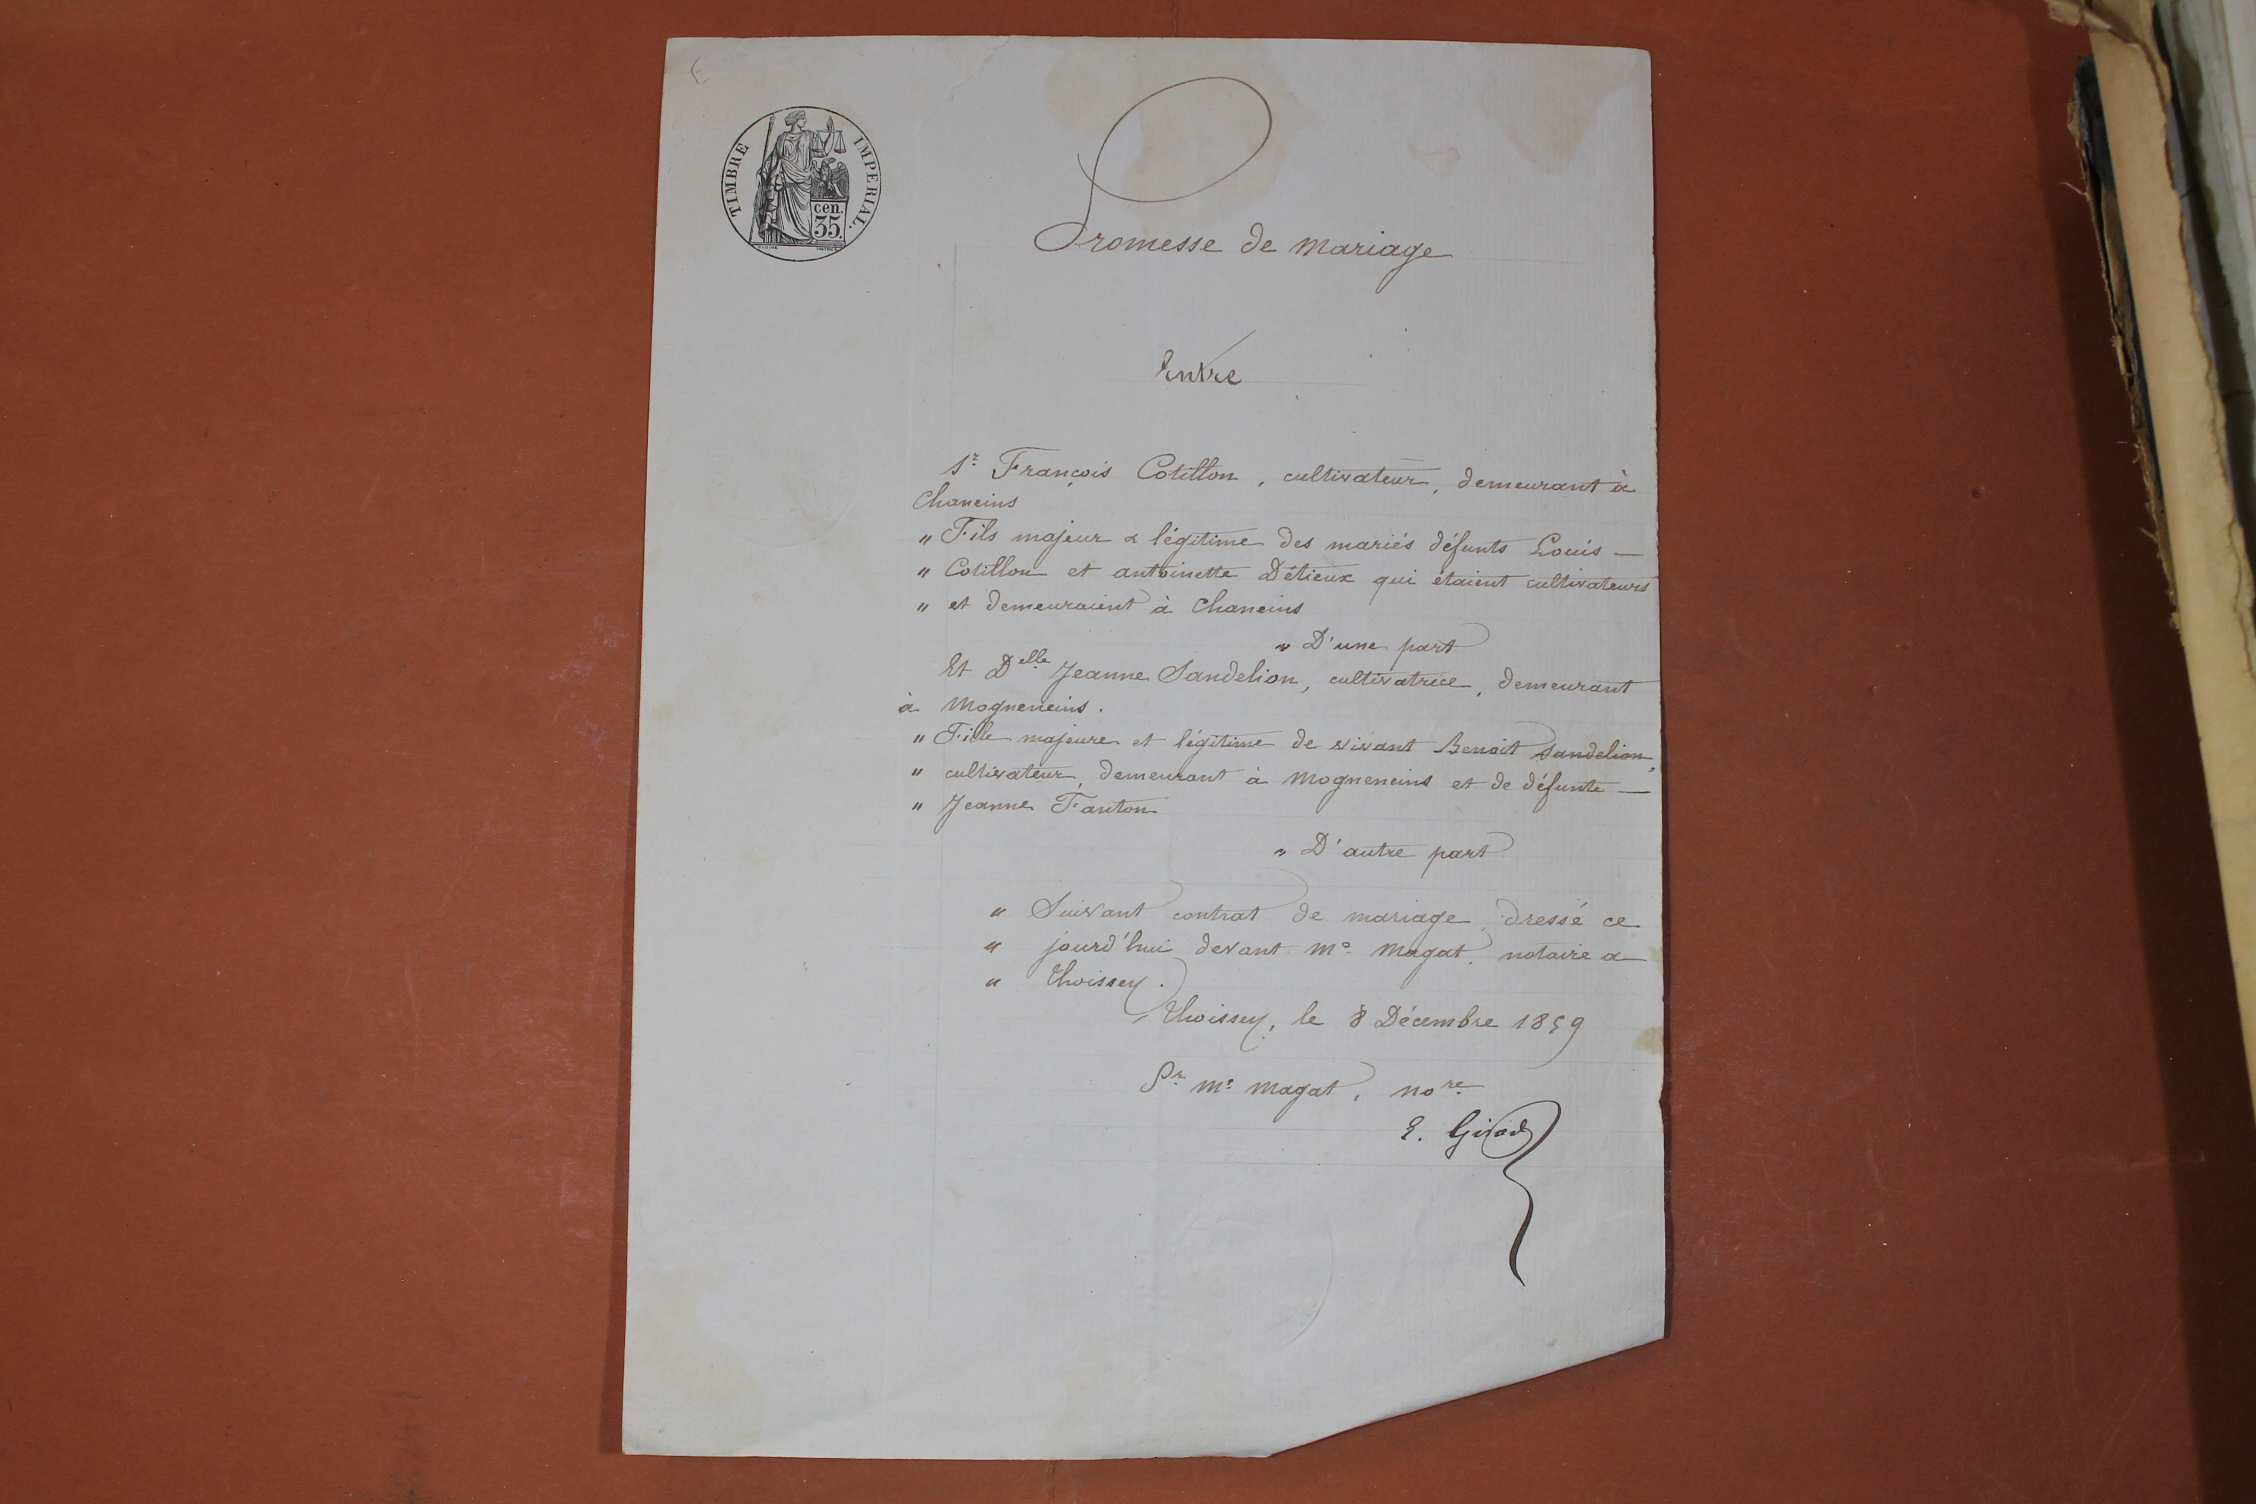 TIMBRE IMPERIAL.
cen.
35.
Promesse de mariage
Entre
Sr. François Cotillon, cultivateur, demeurant à
Chaneins
" Fils majeur & légitime des mariés défunts Louis —
" Cotillon et antoinette Détieux qui étaient cultivateurs
" et demeuraient à Chaneins
" D'une part
Et Delle Jeanne Sandelion, cultivatrice, demeurant
à Mogneneins.
" Fille majeure et légitime de vivant Benoit Sandelion,
" cultivateur, demeurant à Mogneneins et de défunte —
" Jeanne Fanton
" D'autre part
" Suivant contrat de mariage, dressé ce
" jourd'hui devant Me. Magat, notaire à
" Thoissey.
Thoissey, le 8 Décembre 1859
Pr. Me. Magat, nore.
E. Girod